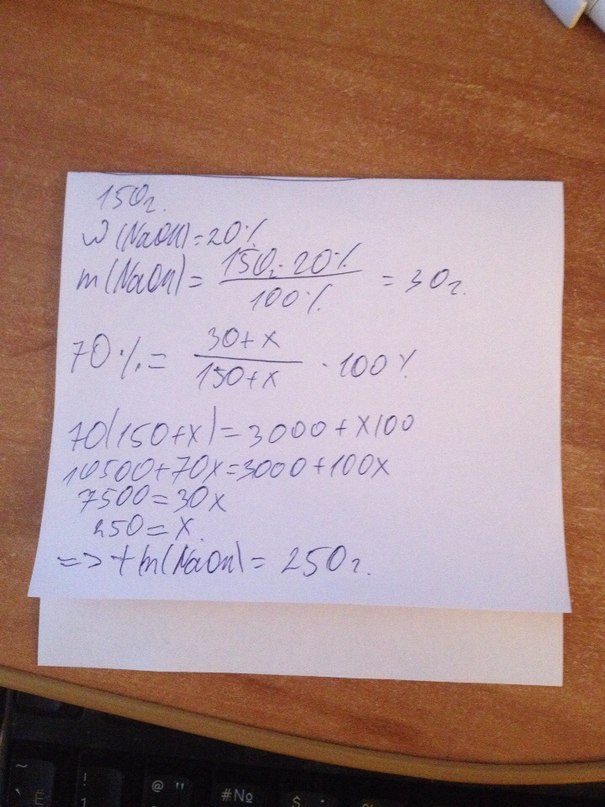 150г.
ω(NaOH)=20%
m(NaOH)= 150г · 20% / 100% = 30г.
70%= 30+x / 150+x · 100%
70(150+x)=3000+x100
10500+70x=3000+100x
7500=30x
250=x.
=> +m(NaOH)= 250г.
~ ! @ " #№ $ ;
Ё 1